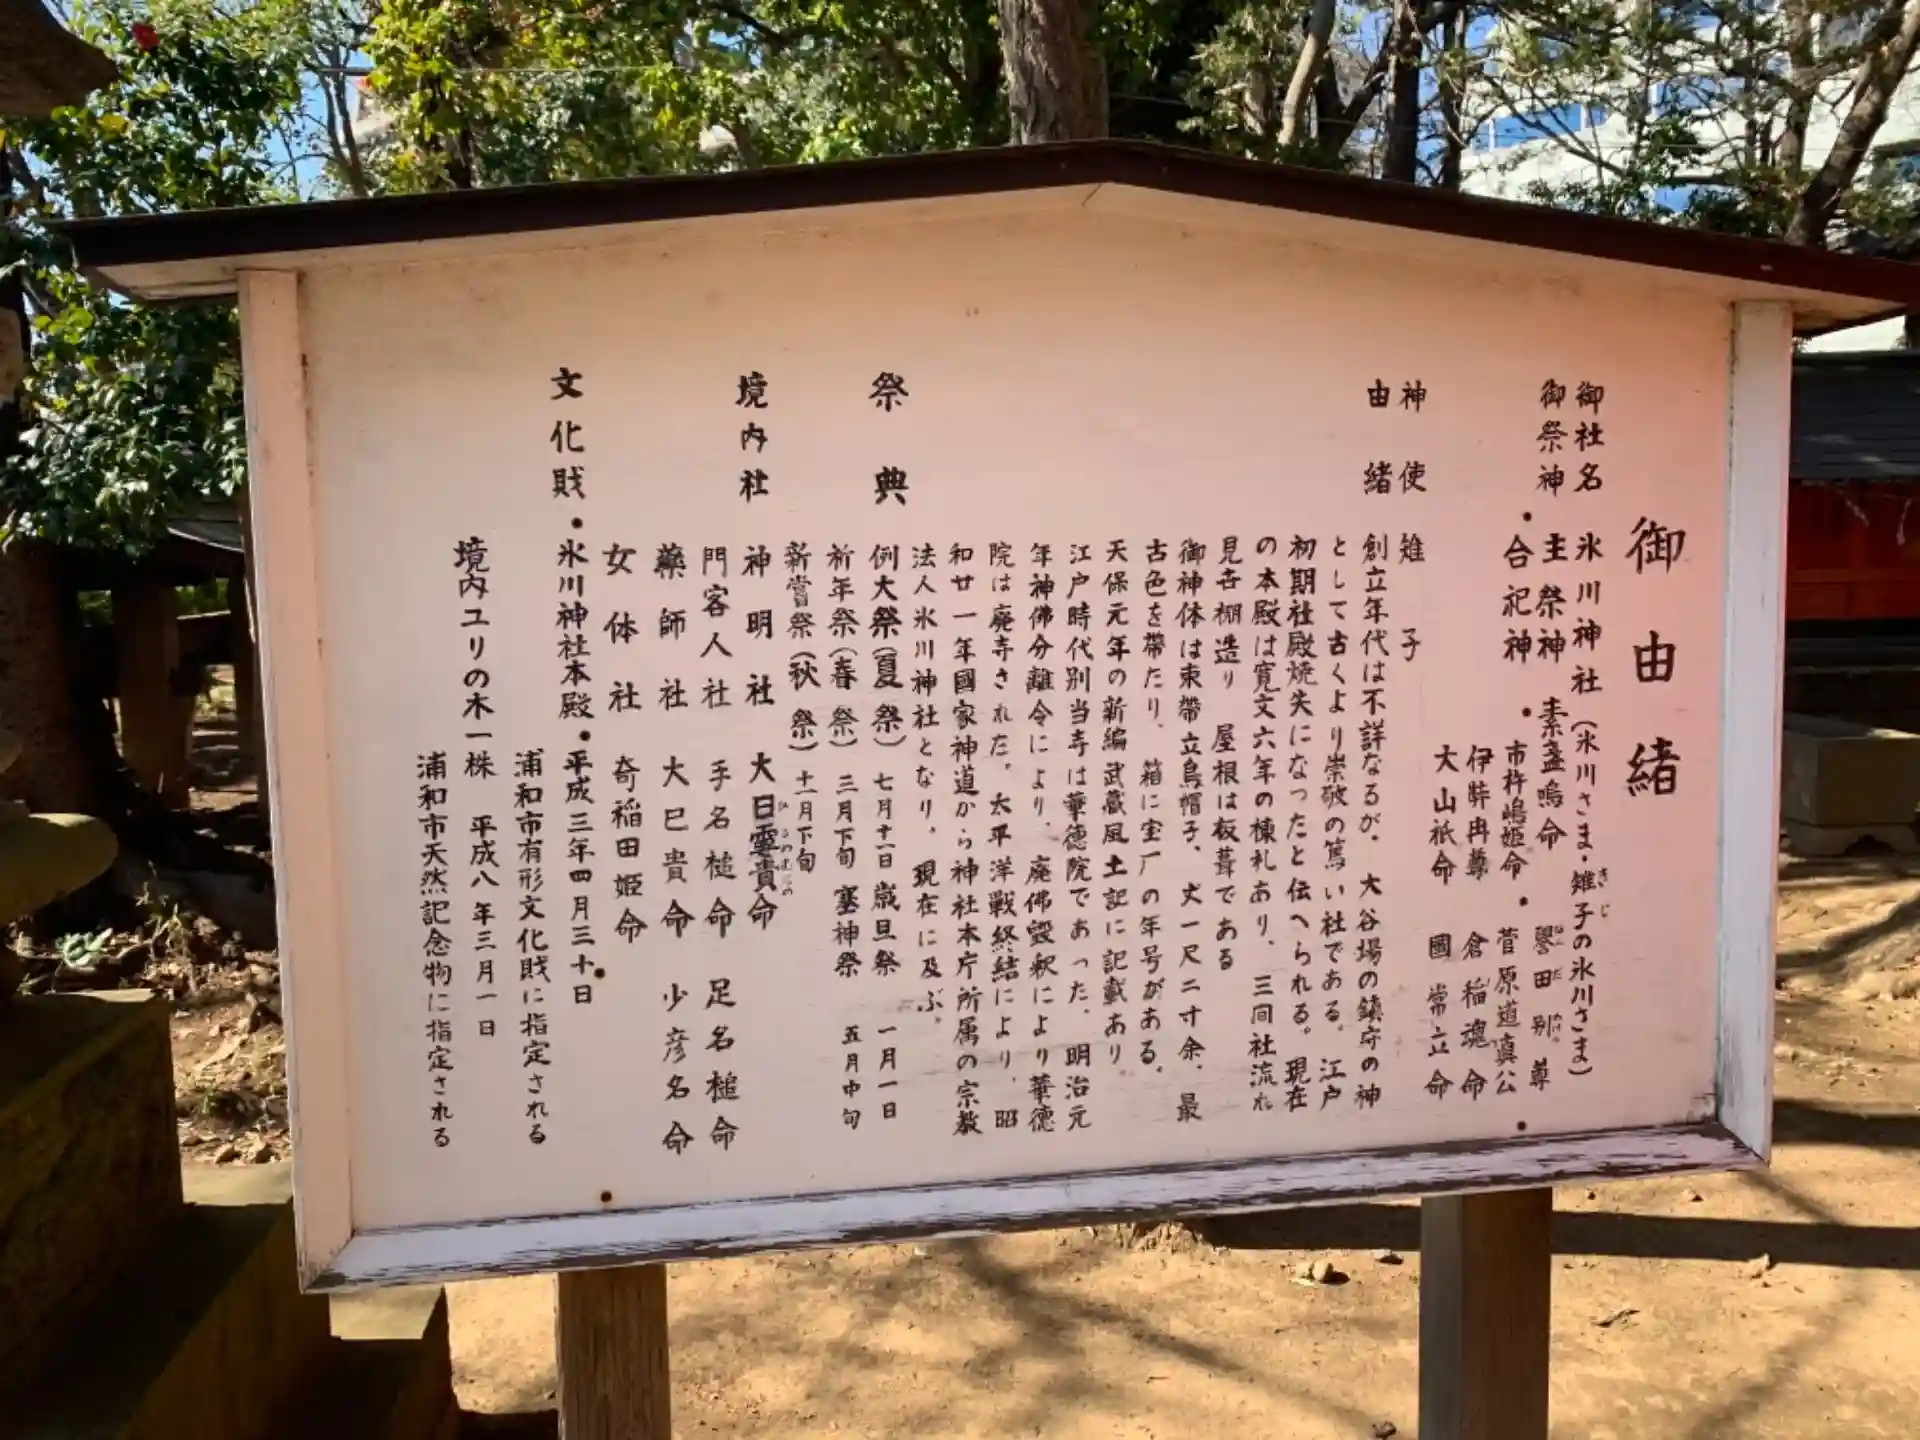 御由緒
御社名 氷川神社（氷川さま・雉子の氷川さま）
きじ
御祭神 主祭神 素盞嗚命
・合祀神 ・市杵嶋姫命 ・譽田別尊
伊弉冉尊 菅原道真公
大山祇命 倉稲魂命
國常立命
神使 雉子
由緒 創立年代は不詳なるが、大谷場の鎮守の神
として古くより崇敬の篤い社である。江戸
初期社殿焼失になったと伝へられる。現在
の本殿は寛文六年の棟札あり、三間社流れ
見世棚造り 屋根は板葺である
御神体は束帶立烏帽子、丈一尺二寸余、最
古色を帶たり、箱に宝厂の年号がある。
天保元年の新編武蔵風土記に記載あり。
江戸時代別当寺は華徳院であった。明治元
年神佛分離令により、廃佛毀釈により華徳
院は廃寺された。太平洋戰終結により、昭
和廿一年國家神道から神社本庁所属の宗教
法人氷川神社となり、現在に及ぶ。
祭典 例大祭（夏祭）七月十一日 歳旦祭 一月一日
祈年祭（春祭）三月下旬 塞神祭 五月中旬
新嘗祭（秋祭）十一月下旬
境内社 神明社 大日孁貴命
ひるめむちの
門客人社 手名槌命 足名槌命
藥師社 大巳貴命 少彦名命
女体社 奇稲田姫命
文化財 ・氷川神社本殿 ・平成三年四月三十日
浦和市有形文化財に指定される
境内ユリの木一株 平成八年三月一日
浦和市天然記念物に指定される